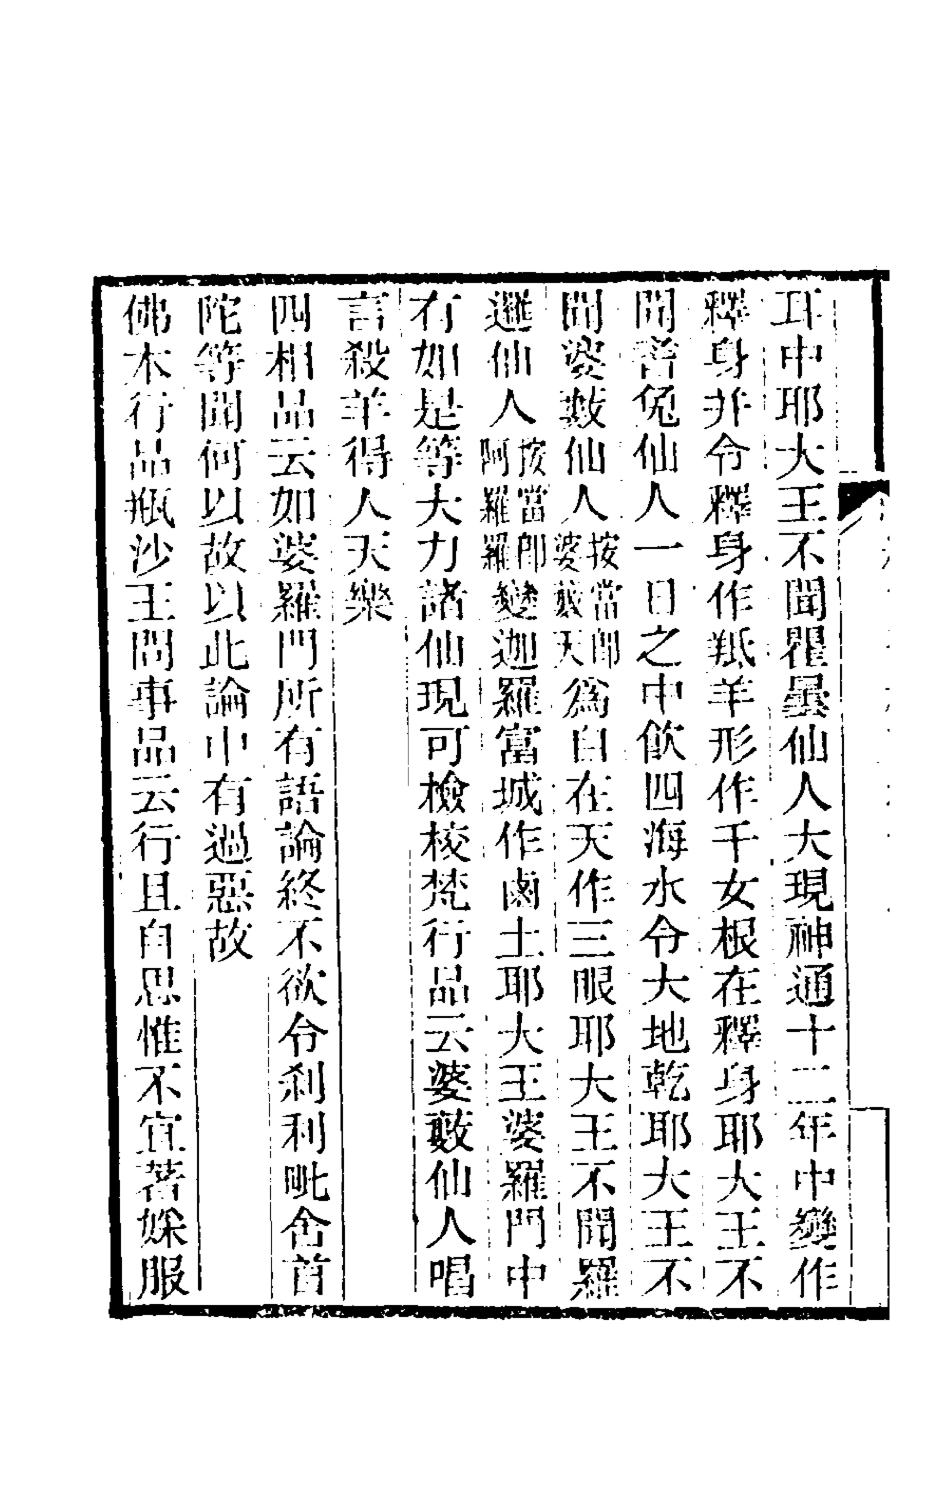 耳中耶大王不聞瞿曇仙人大現神通十二年中變作
釋身并令釋身作羝羊形作千女根在釋身耶大王不
聞耆兔仙人一日之中飲四海水令大地乾耶大王不
聞婆藪仙人按當卽婆藪天為自在天作三眼耶大王不聞羅
邏仙人按當卽阿羅羅變迦羅富城作鹵土耶大王婆羅門中
有如是等大力諸仙現可檢校梵行品云婆藪仙人唱
言殺羊得人天樂
四相品云如婆羅門所有語論終不欲令刹利毗舍首
陀等聞何以故以此論中有過惡故
佛本行品瓶沙王問事品云行且自思惟不宜著婇服